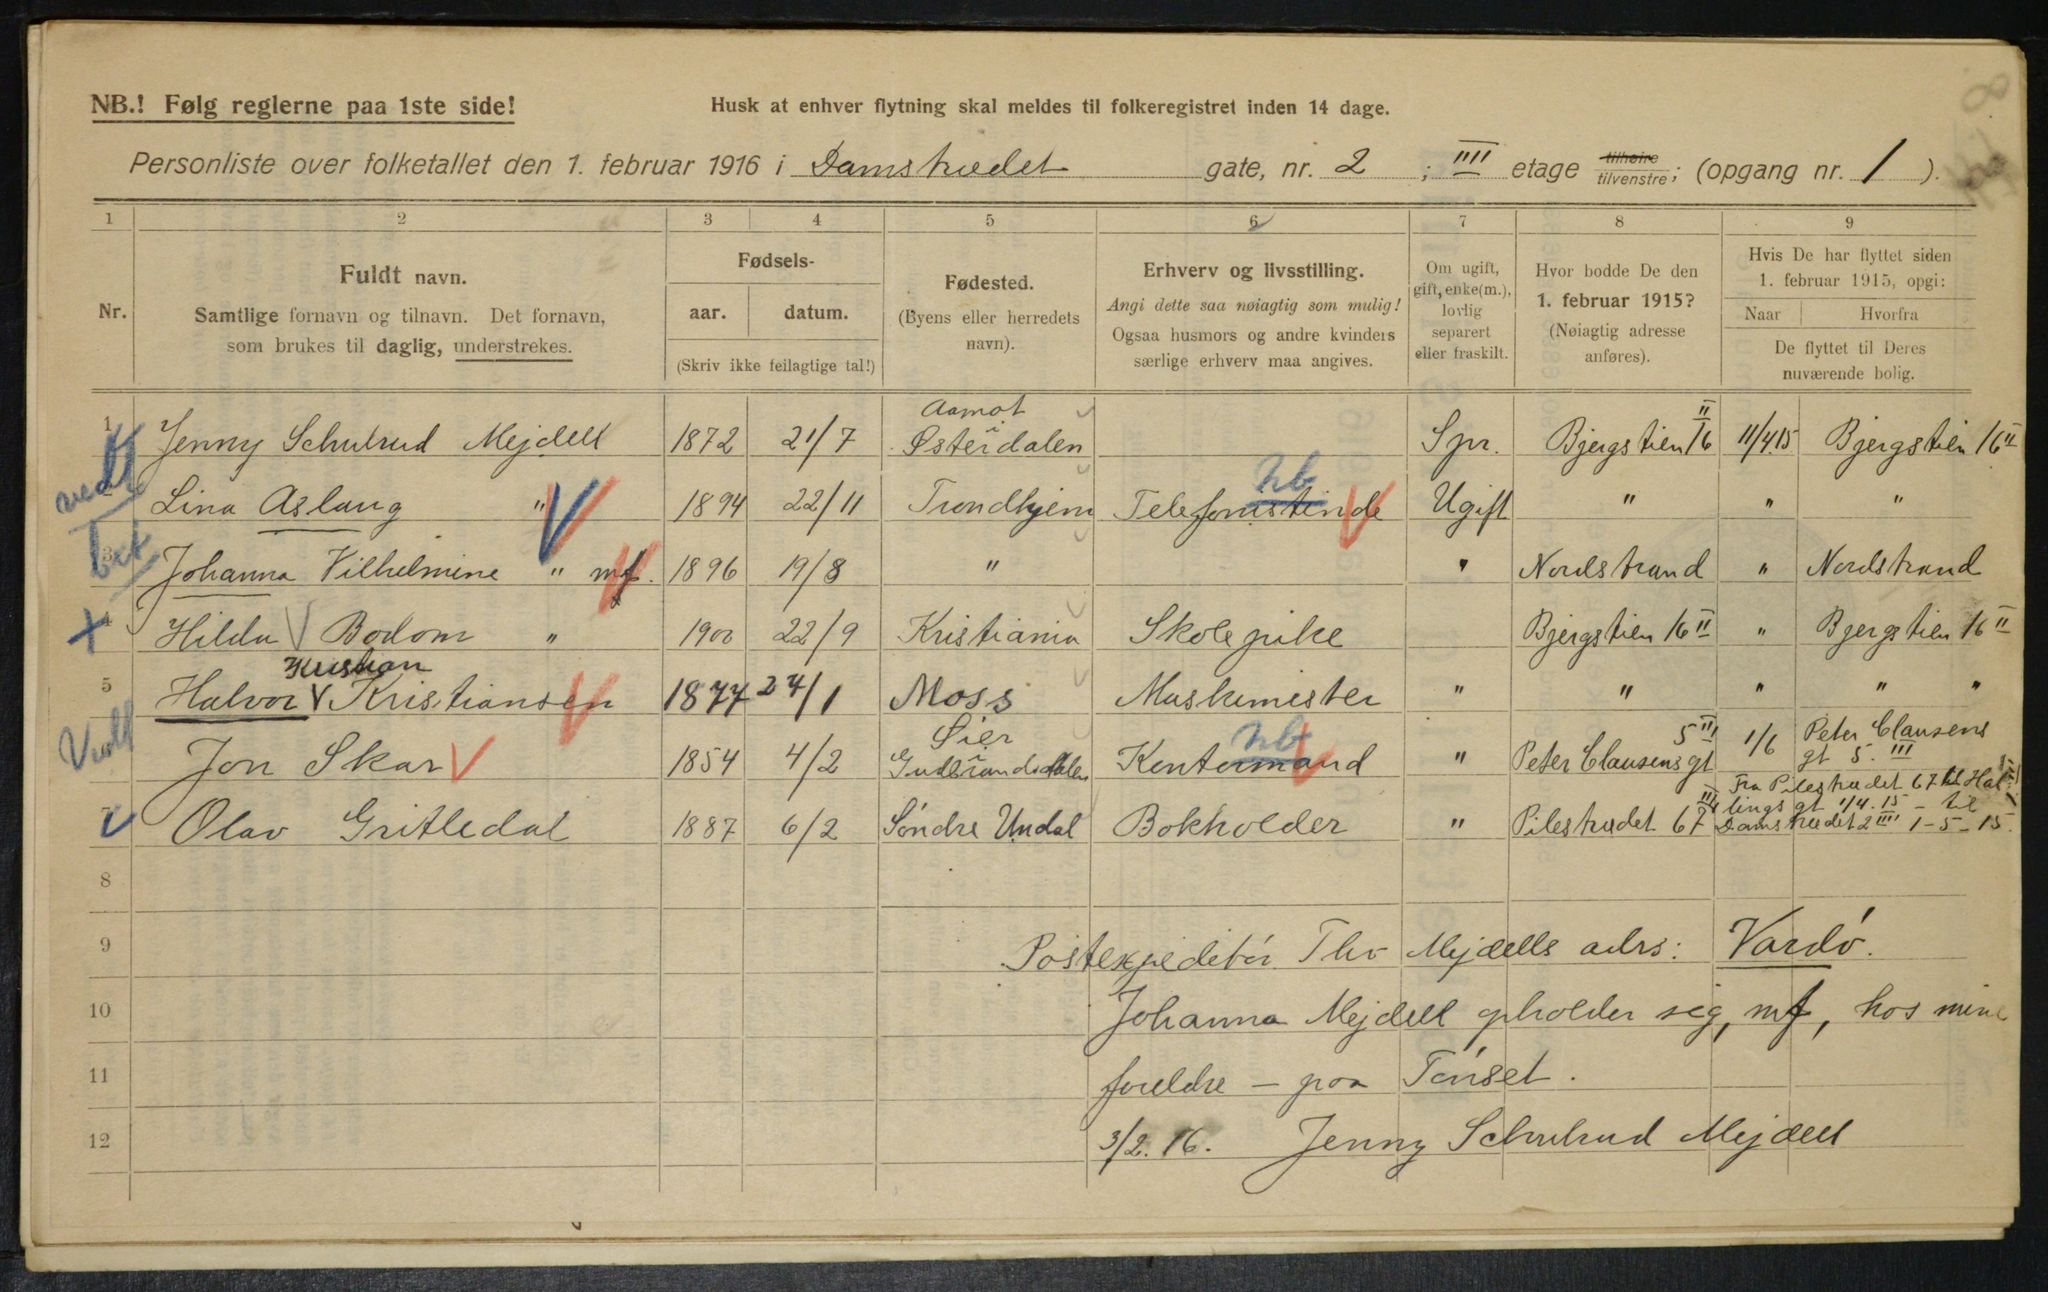 NB.! Følg reglerne paa 1ste side!
Husk at enhver flytning skal meldes til folkeregistret inden 14 dage.
Personliste over folketallet den 1. februar 1916 i Damstrædet gate, nr. 2 ; IIII etage tilhøire tilvenstre; (opgang nr. 1 ).
1 2 3 4 5 6 7 8 9
Nr.
Fuldt navn.
Samtlige fornavn og tilnavn. Det fornavn,
som brukes til daglig, understrekes.
Fødsels-
aar. datum.
(Skriv ikke feilagtige tal!)
Fødested.
(Byens eller herredets
navn).
Erhverv og livsstilling.
Angi dette saa nøiagtig som mulig!
Ogsaa husmors og andre kvinders
særlige erhverv maa angives.
Om ugift,
gift, enke(m.),
lovlig
separert
eller fraskilt.
Hvor bodde De den
1. februar 1915?
(Nøiagtig adresse
anføres).
Hvis De har flyttet siden
1. februar 1915, opgi:
Naar Hvorfra
De flyttet til Deres
nuværende bolig.
1 Jenny Schulrud Mejdell 1872 21/7 Aamot i Østerdalen Spr. Bjergstien 16 II 11/4 15 Bjergstien 16 II
2 Lina Aslaug " 1894 22/11 Trondhjem Telefonistinde nb Ugift " " "
3 Johanna Vilhelmine " mf. 1896 19/8 " " Nordstrand " Nordstrand
4 Hilda Bodom " 1900 22/9 Kristiania Skolepike Bjergstien 16 II " Bjergstien 16 II
5 Halvor Kristian Kristiansen 1877 24/1 Moss Maskinmester " " " " "
Jon Skar 1854 4/2 Øier i Gudbrandsdalen Kontormand nb " Peter Clausens gt 5 III 1/6 Peter Clausens gt 5. III
7 Olav Gritledal 1887 6/2 Søndre Undal Bokholder " Pilestrædet 67 III Fra Pilestrædet 67 til Hal-
lings gt 1/4.15 - til
Damstrædet 2 IIII 1-5-15.
8
9 Postexpeditør Thv Mejdells adrs: Vardø.
10 Johanna Mejdell opholder sig, mf, hos mine
11 foreldre - paa Tønset.
12 3/2.16. Jenny Schulrud Mejdell